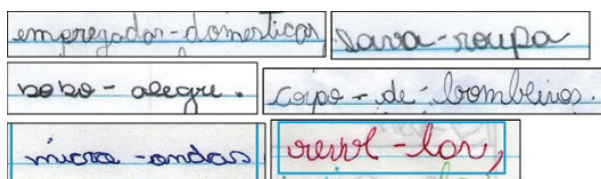 empregadas-domésticas
lava-roupa
bobo-alegre.
corpo-de-bombeiros.
micro-ondas